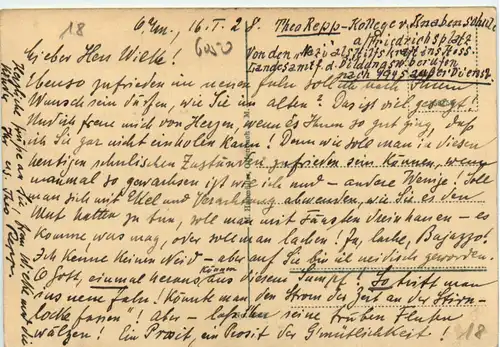 18
Ffm., 16. I. 28.
6050
Theo Repp - Kollege v. Knabenschule
a/Friedrichsplatz
Von den "Nazi" als Hilfskraft ins Hess.
Landesamt f. Bildungsw. berufen
nach 1945 außer Dienst
Lieber Herr Wilk!
Ebenso zufrieden im neuen Jahr soll ich nach Ihrem
Wunsch sein dürfen, wie Sie im alten? Das ist viel gesagt!
Und ich freue mich von Herzen, wenn es Ihnen so gut ging, daß
ich Sie gar nicht einholen kann! Denn wie soll man in diesen
heutigen schulischen Zuständen zufrieden sein können, wenn
man mal so gewachsen ist wie ich und - andere Wenige! Soll
man sich mit Ekel und Verachtung abwenden, wie Sie es den
Mut hatten zu tun, soll man mit Fäusten dreinhauen - es
komme, was mag, oder soll man lachen! Ja, lache, Bajazzo!
Ich kenne keinen Neid - aber auf Sie bin ich neidisch geworden.
O Gott, einmal heraus können aus diesem Sumpf! So trifft man
das neue Jahr! Könnte man den Strom der Zeit an der Stirn-
locke fassen! Aber - lassen seine trüben Fluten
wälzen! Ein Prosit, ein Prosit der Gemütlichkeit!
18
Herzliche Grüße an Sie, Frau Wilk und die
Ihr erg. Theo Repp